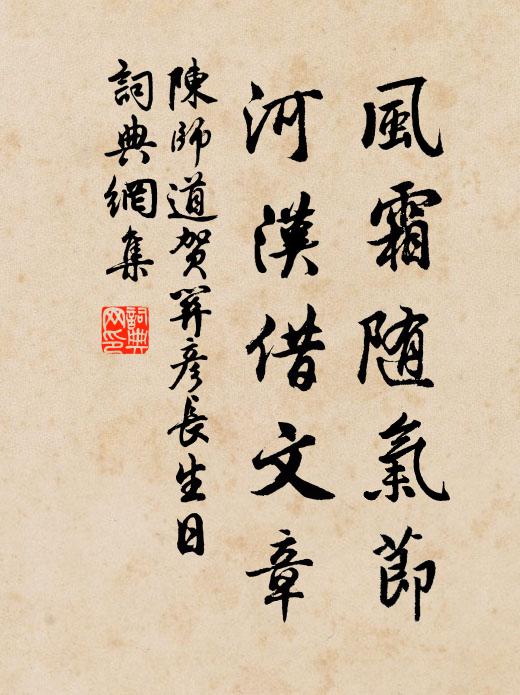 風霜随氣節
河漢借文章
陳師道賀關彥長生日
詞典網集
詞典网印